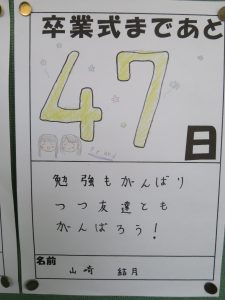 卒業式まであと
47
日
勉強もがんばり
つつ友達とも
がんばろう!
名前
山崎 結月